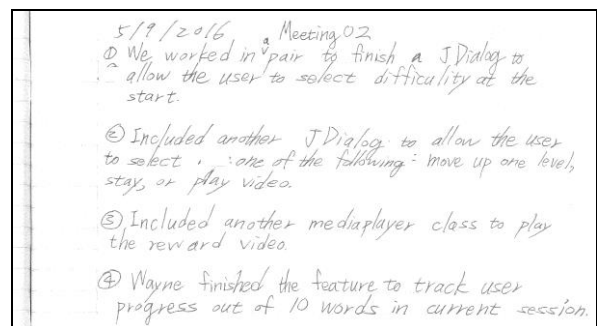 5/9/2016 Meeting 02
① We worked in a pair to finish a JDialog to
allow the user to select difficulity at the
start.
② Included another JDialog to allow the user
to select : one of the following : move up one level,
stay, or play video.
③ Included another mediaplayer class to play
the reward video.
④ Wayne finished the feature to track user
progress out of 10 words in current session.